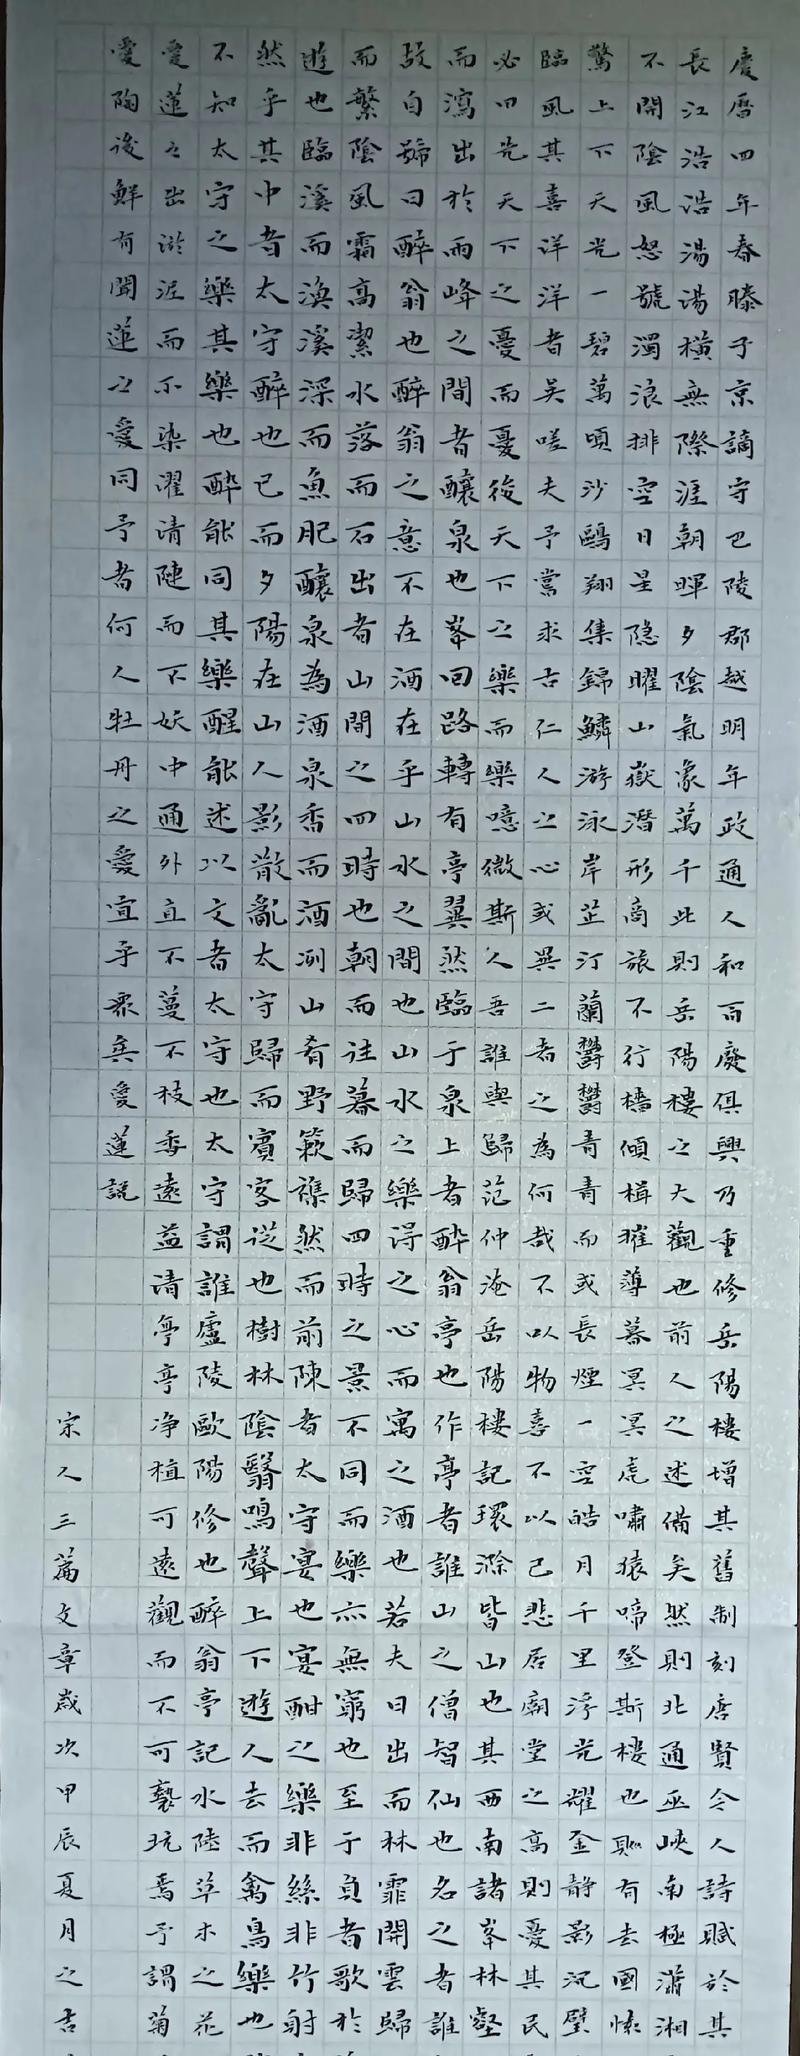 慶曆四年春滕子京謫守巴陵郡越明年政通人和百廢俱興乃重修岳陽樓增其舊制刻唐賢今人詩賦於其
長江浩浩湯湯橫無際涯朝暉夕陰氣象萬千此則岳陽樓之大觀也前人之述備矣然則北通巫峽南極瀟湘
不開陰風怒號濁浪排空日星隱曜山嶽潛形商旅不行檣傾楫摧薄暮冥冥虎嘯猿啼登斯樓也則有去國懷
驚上下天光一碧萬頃沙鷗翔集錦鱗游泳岸芷汀蘭鬱鬱青青而或長煙一空皓月千里浮光耀金静影沉璧
臨風其喜洋洋者矣嗟夫予嘗求古仁人之心或異二者之為何哉不以物喜不以己悲居廟堂之高則憂其民
必曰先天下之憂而憂後天下之樂而樂噫微斯人吾誰與歸范仲淹岳陽樓記環滁皆山也其西南諸峯林壑
而瀉出於兩峰之間者釀泉也峯回路轉有亭翼然臨于泉上者醉翁亭也作亭者誰山之僧智仙也名之者誰
故自號曰醉翁也醉翁之意不在酒在乎山水之間也山水之樂得之心而寓之酒也若夫日出而林霏開雲歸
而繁陰風霜高潔水落而石出者山間之四時也朝而往暮而歸四時之景不同而樂亦無窮也至于負者歌於
遊也臨溪而漁溪深而魚肥釀泉為酒泉香而酒洌山肴野蔌襍然而前陳者太守宴也宴酣之樂非絲非竹射
然乎其中者太守醉也已而夕陽在山人影散亂太守歸而賓客從也樹林陰翳鳴聲上下遊人去而禽鳥樂也
不知太守之樂其樂也醉能同其樂醒能述以文者太守也太守謂誰廬陵歐陽修也醉翁亭記水陸草木之花
愛蓮之出淤泥而不染濯清漣而不妖中通外直不蔓不枝香遠益清亭亭净植可遠觀而不可褻玩焉予謂菊
愛陶後鮮有聞蓮之愛同予者何人牡丹之愛宜乎衆矣愛蓮說
宋人三篇文章歲次甲辰夏月之吉